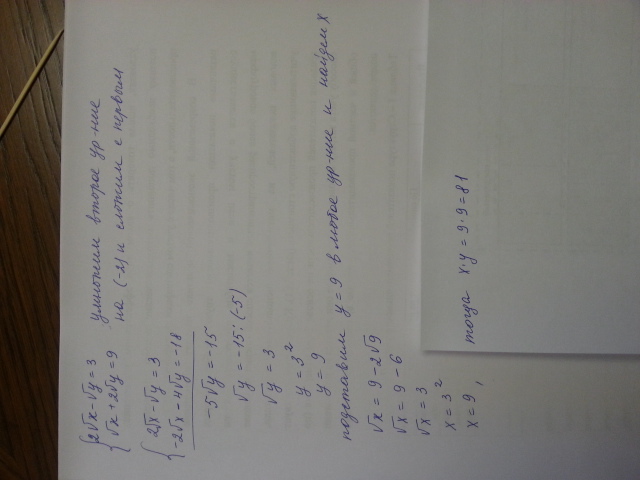 {2√x-√y=3 умножим второе ур-ние
√x+2√y=9 на (-2) и сложим с первым
{2√x-√y=3
-2√x-4√y=-18
-5√y=-15
√y=-15:(-5)
√y=3
y=3²
y=9
подставим y=9 в любое ур-ние и найдем x
√x=9-2√9
√x=9-6
√x=3
x=3²
x=9, тогда x·y=9·9=81